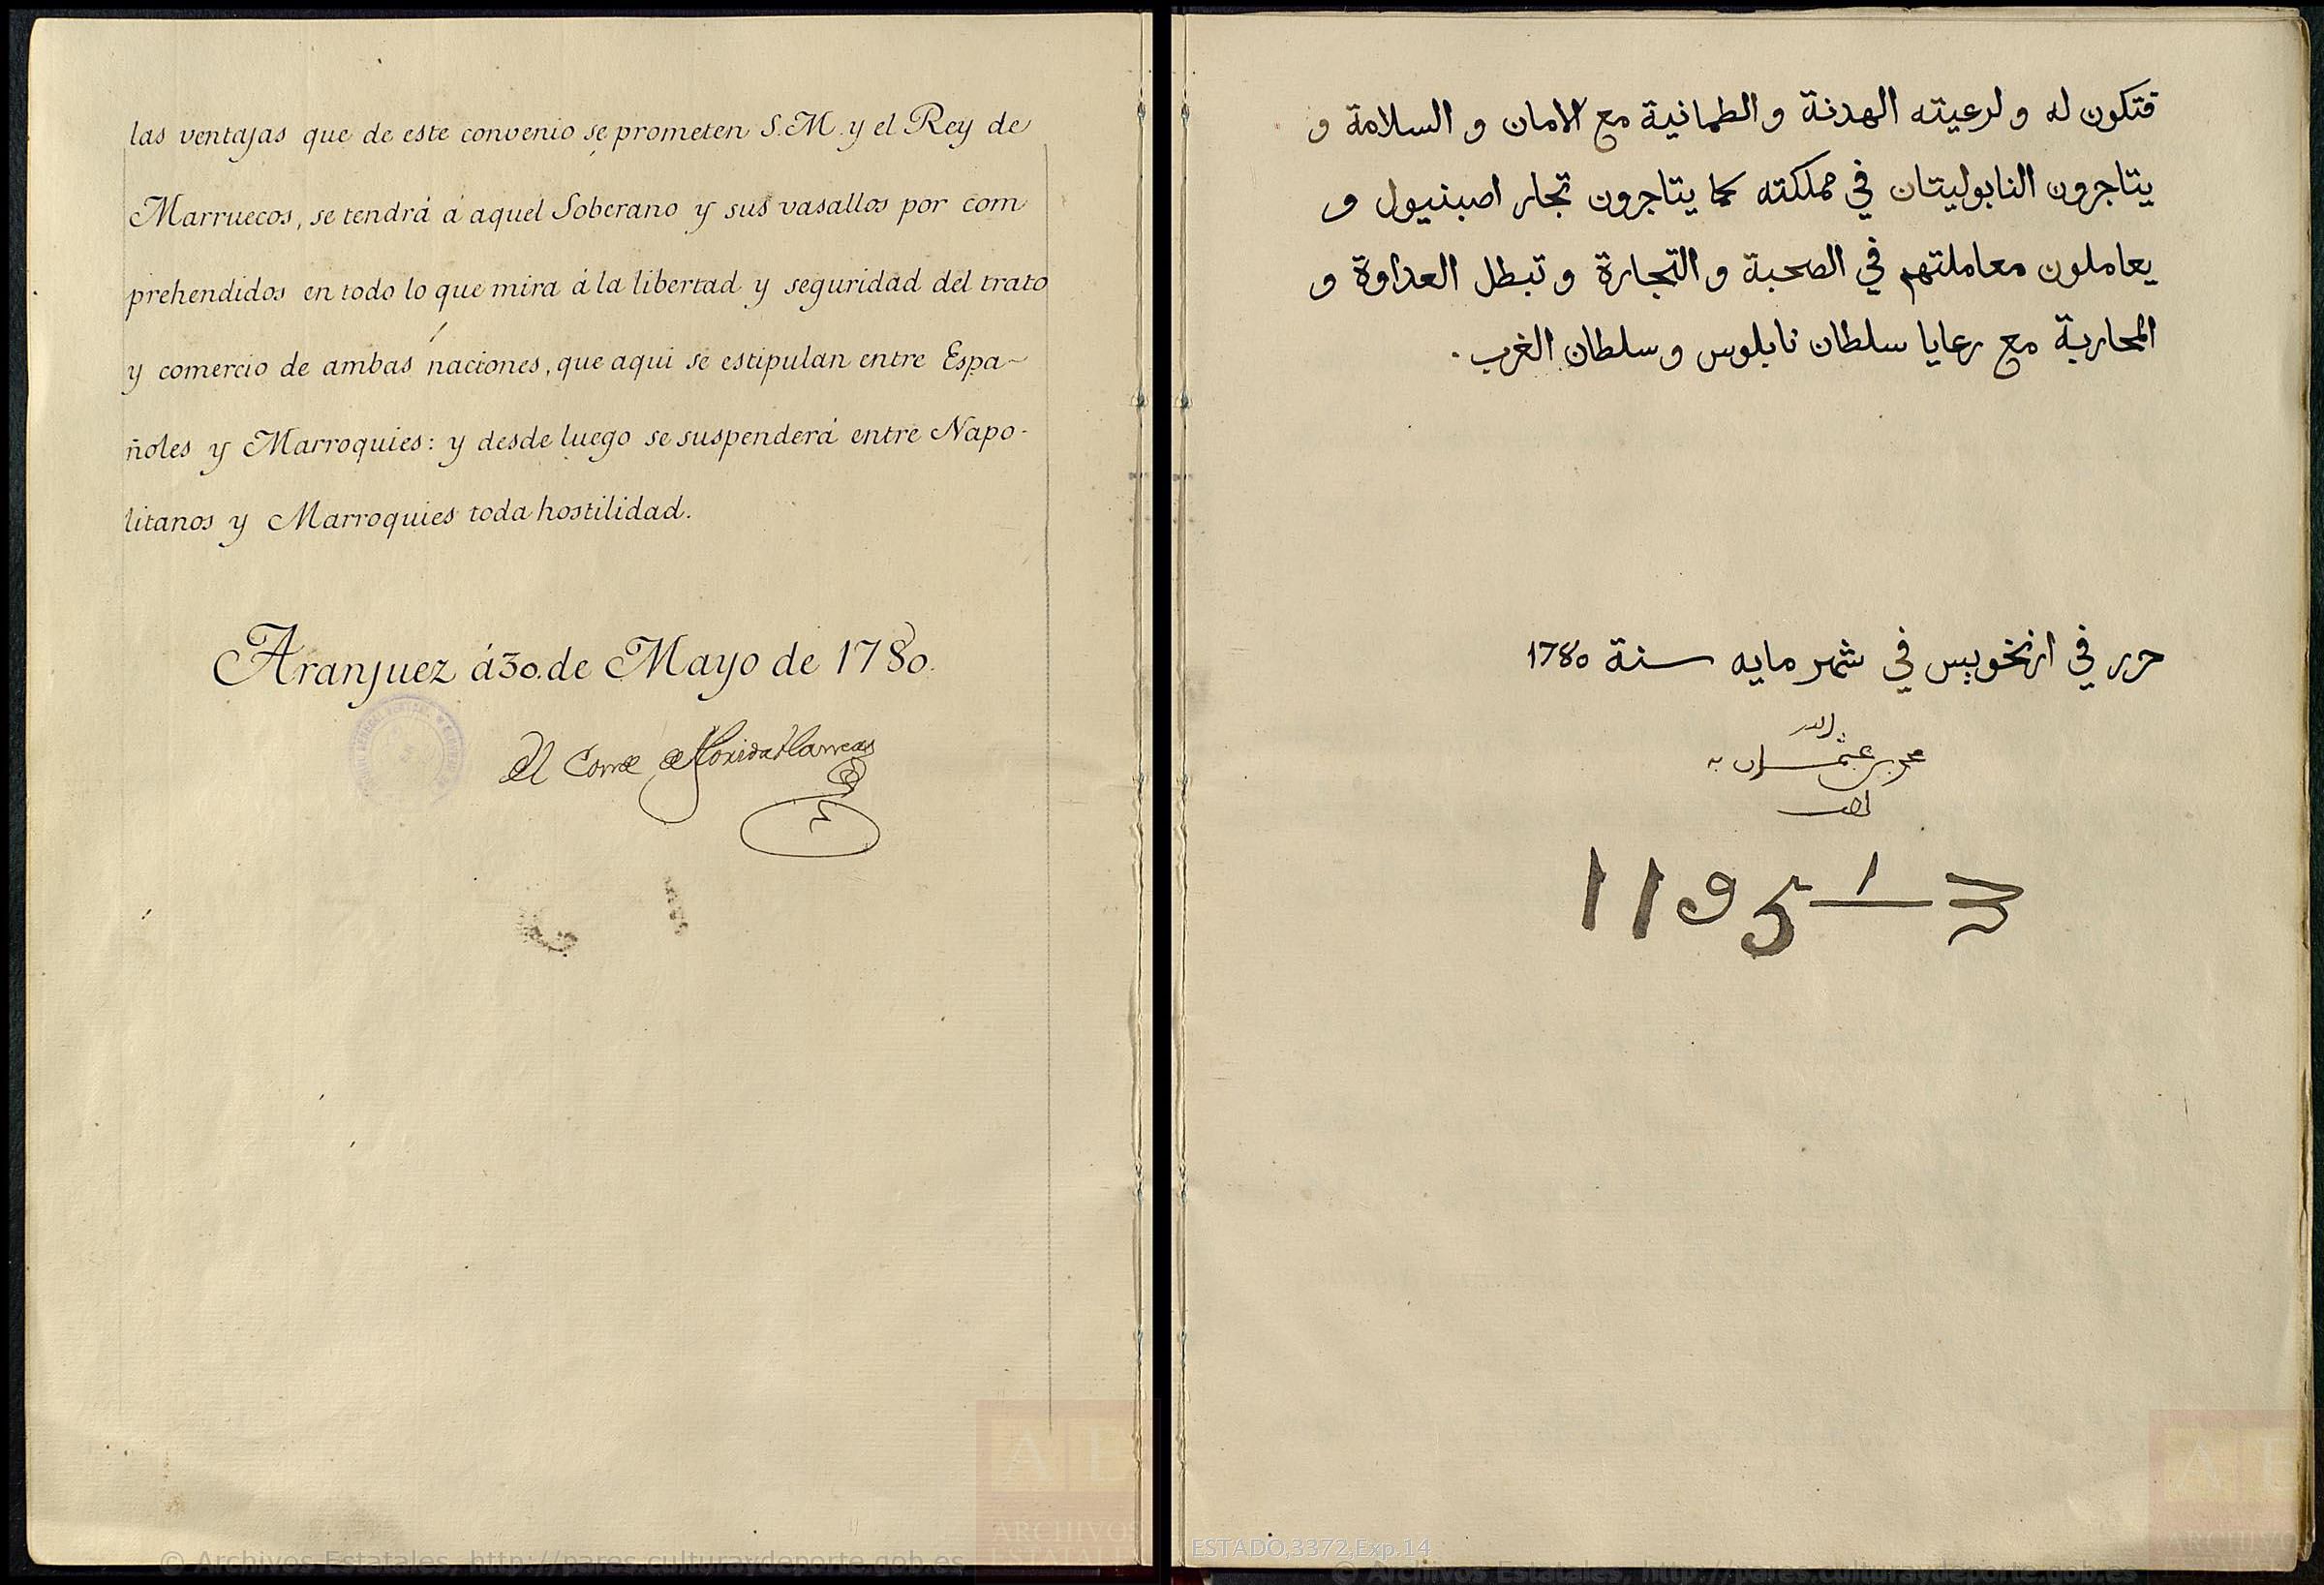 las ventajas que de este convenio se prometen S.M. y el Rey de
Marruecos, se tendrá á aquel Soberano y sus vasallos por com
prehendidos en todo lo que mira á la libertad y seguridad del trato
y comercio de ambas naciones, que aqui se estipulan entre Espa~
ñoles y Marroquies: y desde luego se suspenderá entre Napo-
litanos y Marroquies toda hostilidad.
Aranjuez á 30. de Mayo de 1780.
El Conde de Floridablanca
فتكون له و لرعيته الهدنة و الطمانية مع الامان و السلامة و
يتاجرون النابوليتان في مملكته كما يتاجرون تجار اصبنيول و
يعاملون معاملتهم في الصحبة و التجارة و تبطل العداوة و
المحاربة مع رعايا سلطان نابلوس و سلطان الغرب .
حرر في ارنخويس في شهر مايه سنة 1780
محمد بن عثمان
الله
1195
ESTADO,3372,Exp.14
© Archivos Estatales, http://pares.culturaydeporte.gob.es
© Archivos Estatales, http://pares.culturaydeporte.gob.es
AE
ARCHIVOS ESTATALES